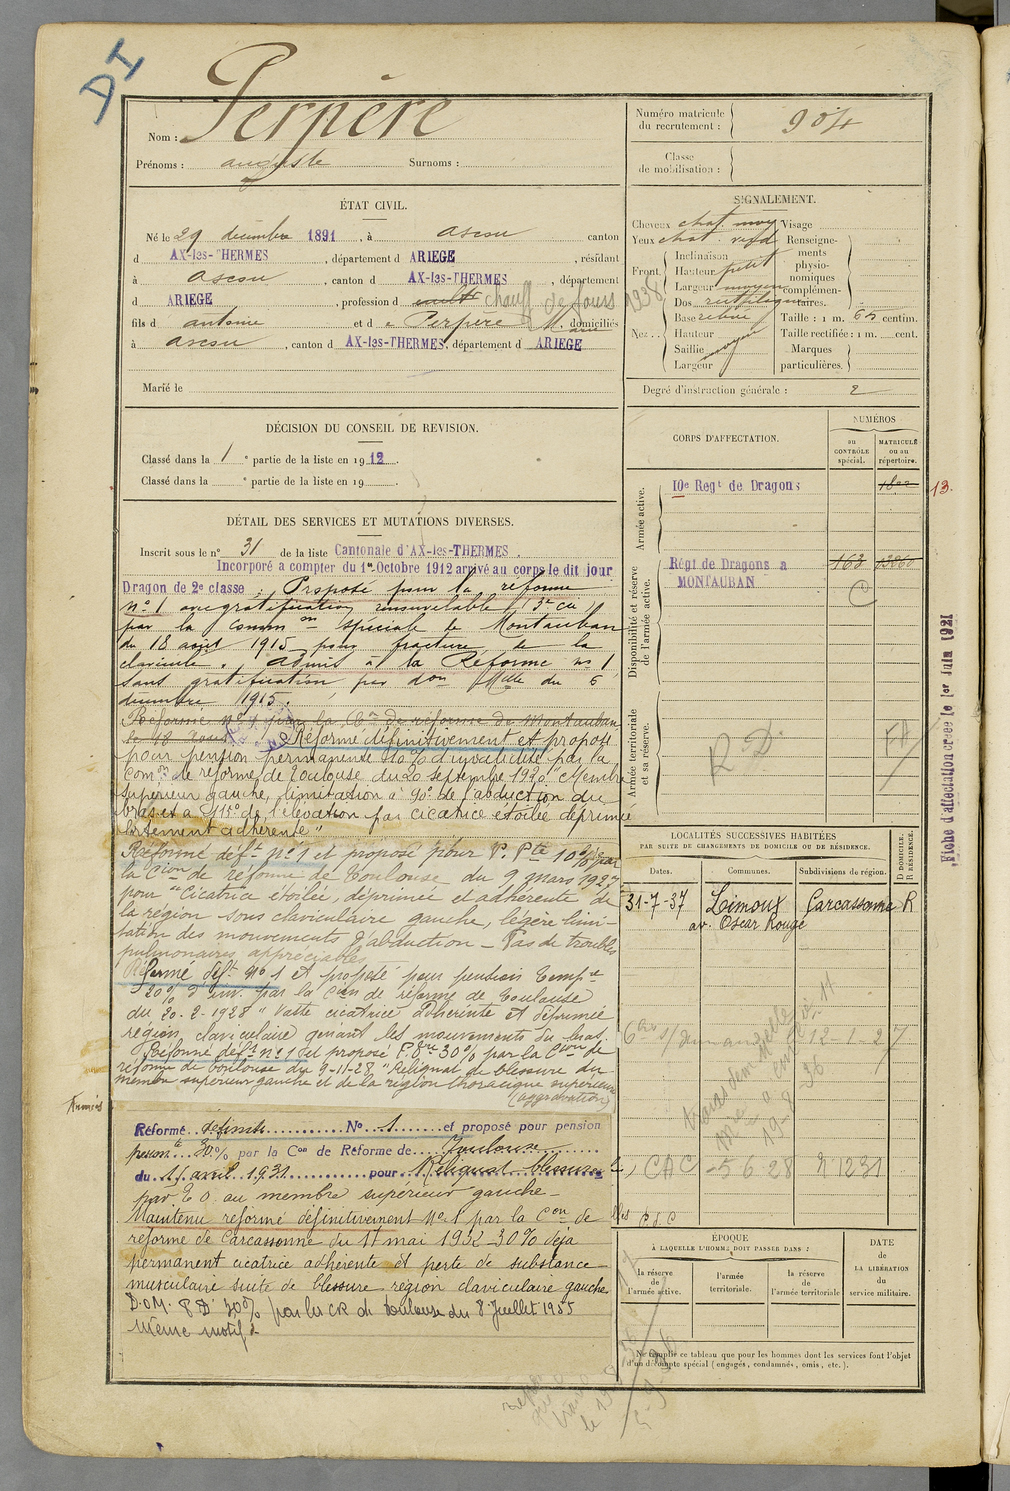 DI
Nom : Perpère
Prénoms : auguste Surnoms :
Numéro matricule
du recrutement : 904
Classe
de mobilisation :
ÉTAT CIVIL.
Né le 29 décembre 1891, à ascou canton
d AX-les-THERMES, départemt d ARIEGE, résidant
à ascou, canton d AX-les-THERMES, département
d ARIEGE, profession d cult chauff de fours 1938
fils d antoine et de Perpère Marie domiciliés
à ascou, canton d AX-les-THERMES, département d ARIEGE
Marié le
SIGNALEMENT.
Cheveux chat moy Visage
Yeux chat. Renseigne-
Inclinaison ments
Front. Hauteur petit physio-
nomiques
Largeur moyen complémen-
Dos rectiligne taires.
Base Taille : 1 m. 65 centim.
Nez... Hauteur moyen Taille rectifiée : 1 m. cent.
Saillie Marques
Largeur particulières.
Degré d'instruction générale : 2
DÉCISION DU CONSEIL DE REVISION.
Classé dans la 1 e partie de la liste en 1912.
Classé dans la e partie de la liste en 19 .
CORPS D'AFFECTATION.
NUMÉROS
au CONTRÔLE spécial.
MATRICULE ou au répertoire.
Armée active.
10e Regt de Dragons
13.
Disponibilité et réserve
de l'armée active.
Régt de Dragons à 163
MONTAUBAN
C
Armée territoriale
et sa réserve.
R D.
Fiche d'affectation créée le 1er Juin 1921
DÉTAIL DES SERVICES ET MUTATIONS DIVERSES.
Inscrit sous le n° 31 de la liste Cantonale d'AX-les-THERMES.
Incorporé à compter du 1er Octobre 1912 arrivé au corps le dit jour
Dragon de 2e classe. Proposé pour la réforme
n° 1 avec gratification renouvelable (3e ca
par la Common spéciale de Montauban
du 18 août 1915 pour fracture de la
clavicule. Admis à la Réforme n° 1
sans gratification par don Mlle du 6
décembre 1915.
Réformé n° 1 par la Con de réforme de Montauban
le 18 Aout
Réformé définitivement et proposé
pour pension permanente 10% d'invalidité par la
Comon de réforme de Toulouse du 20 septembre 1920 "Membre
supérieur gauche, limitation à 90° de l'abduction du
bras et à 115° de l'élévation par cicatrice étoilée déprimée
fortement adhérente"
Réformé déft n° 1 et proposé pour P. Pte 10% par
la Cion de réforme de Toulouse du 9 mars 1927
pour "Cicatrice étoilée, déprimée et adhérente de
la région sous claviculaire gauche, légère limi-
tation des mouvements d'abduction – Pas de troubles
pulmonaires appréciables
Réformé déft n° 1 et proposé pour pension tempre
20% d'inv. par la Cion de réforme de Toulouse
du 20-2-1928 "Vaste cicatrice adhérente et déprimée
région claviculaire gênant les mouvements du bras.
Réformé déft n° 1 et proposé P. 30% par la Cion de
réforme de Toulouse du 9-11-28 "Reliquat de blessure du
membre supérieur gauche et de la région thoracique supérieure
(aggravation)
Réformé définitt N° 1 et proposé pour pension
permte 30% par la Con de Réforme de Toulouse
du 11 avril 1931 pour Reliquat blessures
par E O. au membre supérieur gauche -
Maintenu réformé définitivement n° 1 par la Con de
réforme de Carcassonne du 17 mai 1932 - 30% déjà
permanent cicatrice adhérente et perte de substance
musculaire suite de blessure région claviculaire gauche
D.O.M. P D 30% par la CR de Toulouse du 8 Juillet 1935
Même motif
LOCALITÉS SUCCESSIVES HABITÉES
PAR SUITE DE CHANGEMENTS DE DOMICILE OU DE RÉSIDENCE.
Dates. Communes. Subdivisions de région. D DOMICILE. R RÉSIDENCE.
31-7-37 Limoux Carcassonne R
av. Oscar Rougé
12-1-27
19-8 36
CAC - 5 6 28 N 1231
ÉPOQUE
À LAQUELLE L'HOMME DOIT PASSER DANS :
la réserve de l'armée active.
l'armée territoriale.
la réserve de l'armée territoriale
DATE de LA LIBÉRATION du service militaire.
Ne remplir ce tableau que pour les hommes dont les services font l'objet
d'un décompte spécial (engagés, condamnés, omis, etc.).